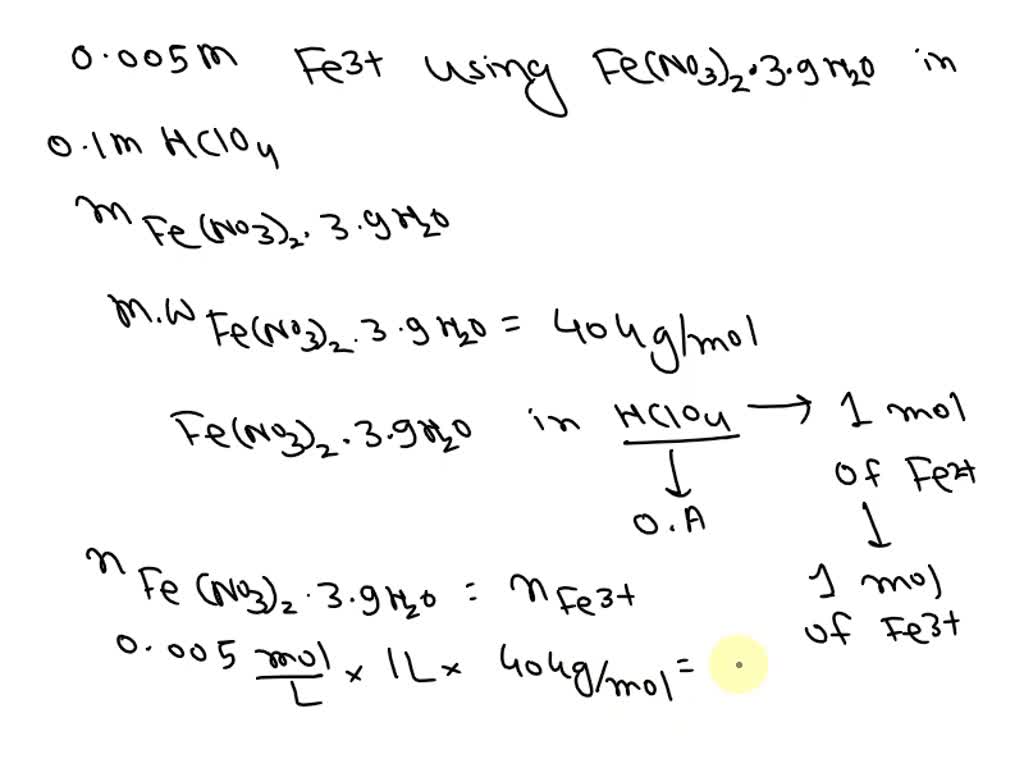 0.005m Fe3+ using Fe(NO3)2.3.9H2O in
0.1m HClO4
m Fe(NO3)2.3.9H2O
m.W Fe(NO3)2.3.9H2O = 404g/mol
Fe(NO3)2.3.9H2O in HClO4 → 1 mol
of Fe2+
↓ ↓
O.A
1 mol
of Fe3+
n Fe(NO3)2.3.9H2O = n Fe3+
0.005 mol/L × 1L × 404g/mol =